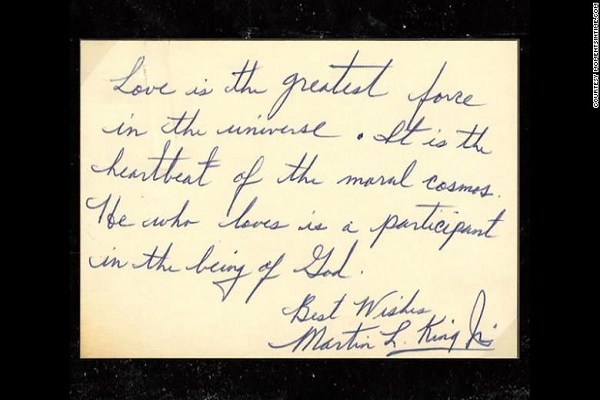 Love is the greatest force
in the universe. It is the
heartbeat of the moral cosmos.
He who loves is a participant
in the being of God.
Best Wishes,
Martin L. King Jr.
COURTESY MOMENTSINTIME.COM